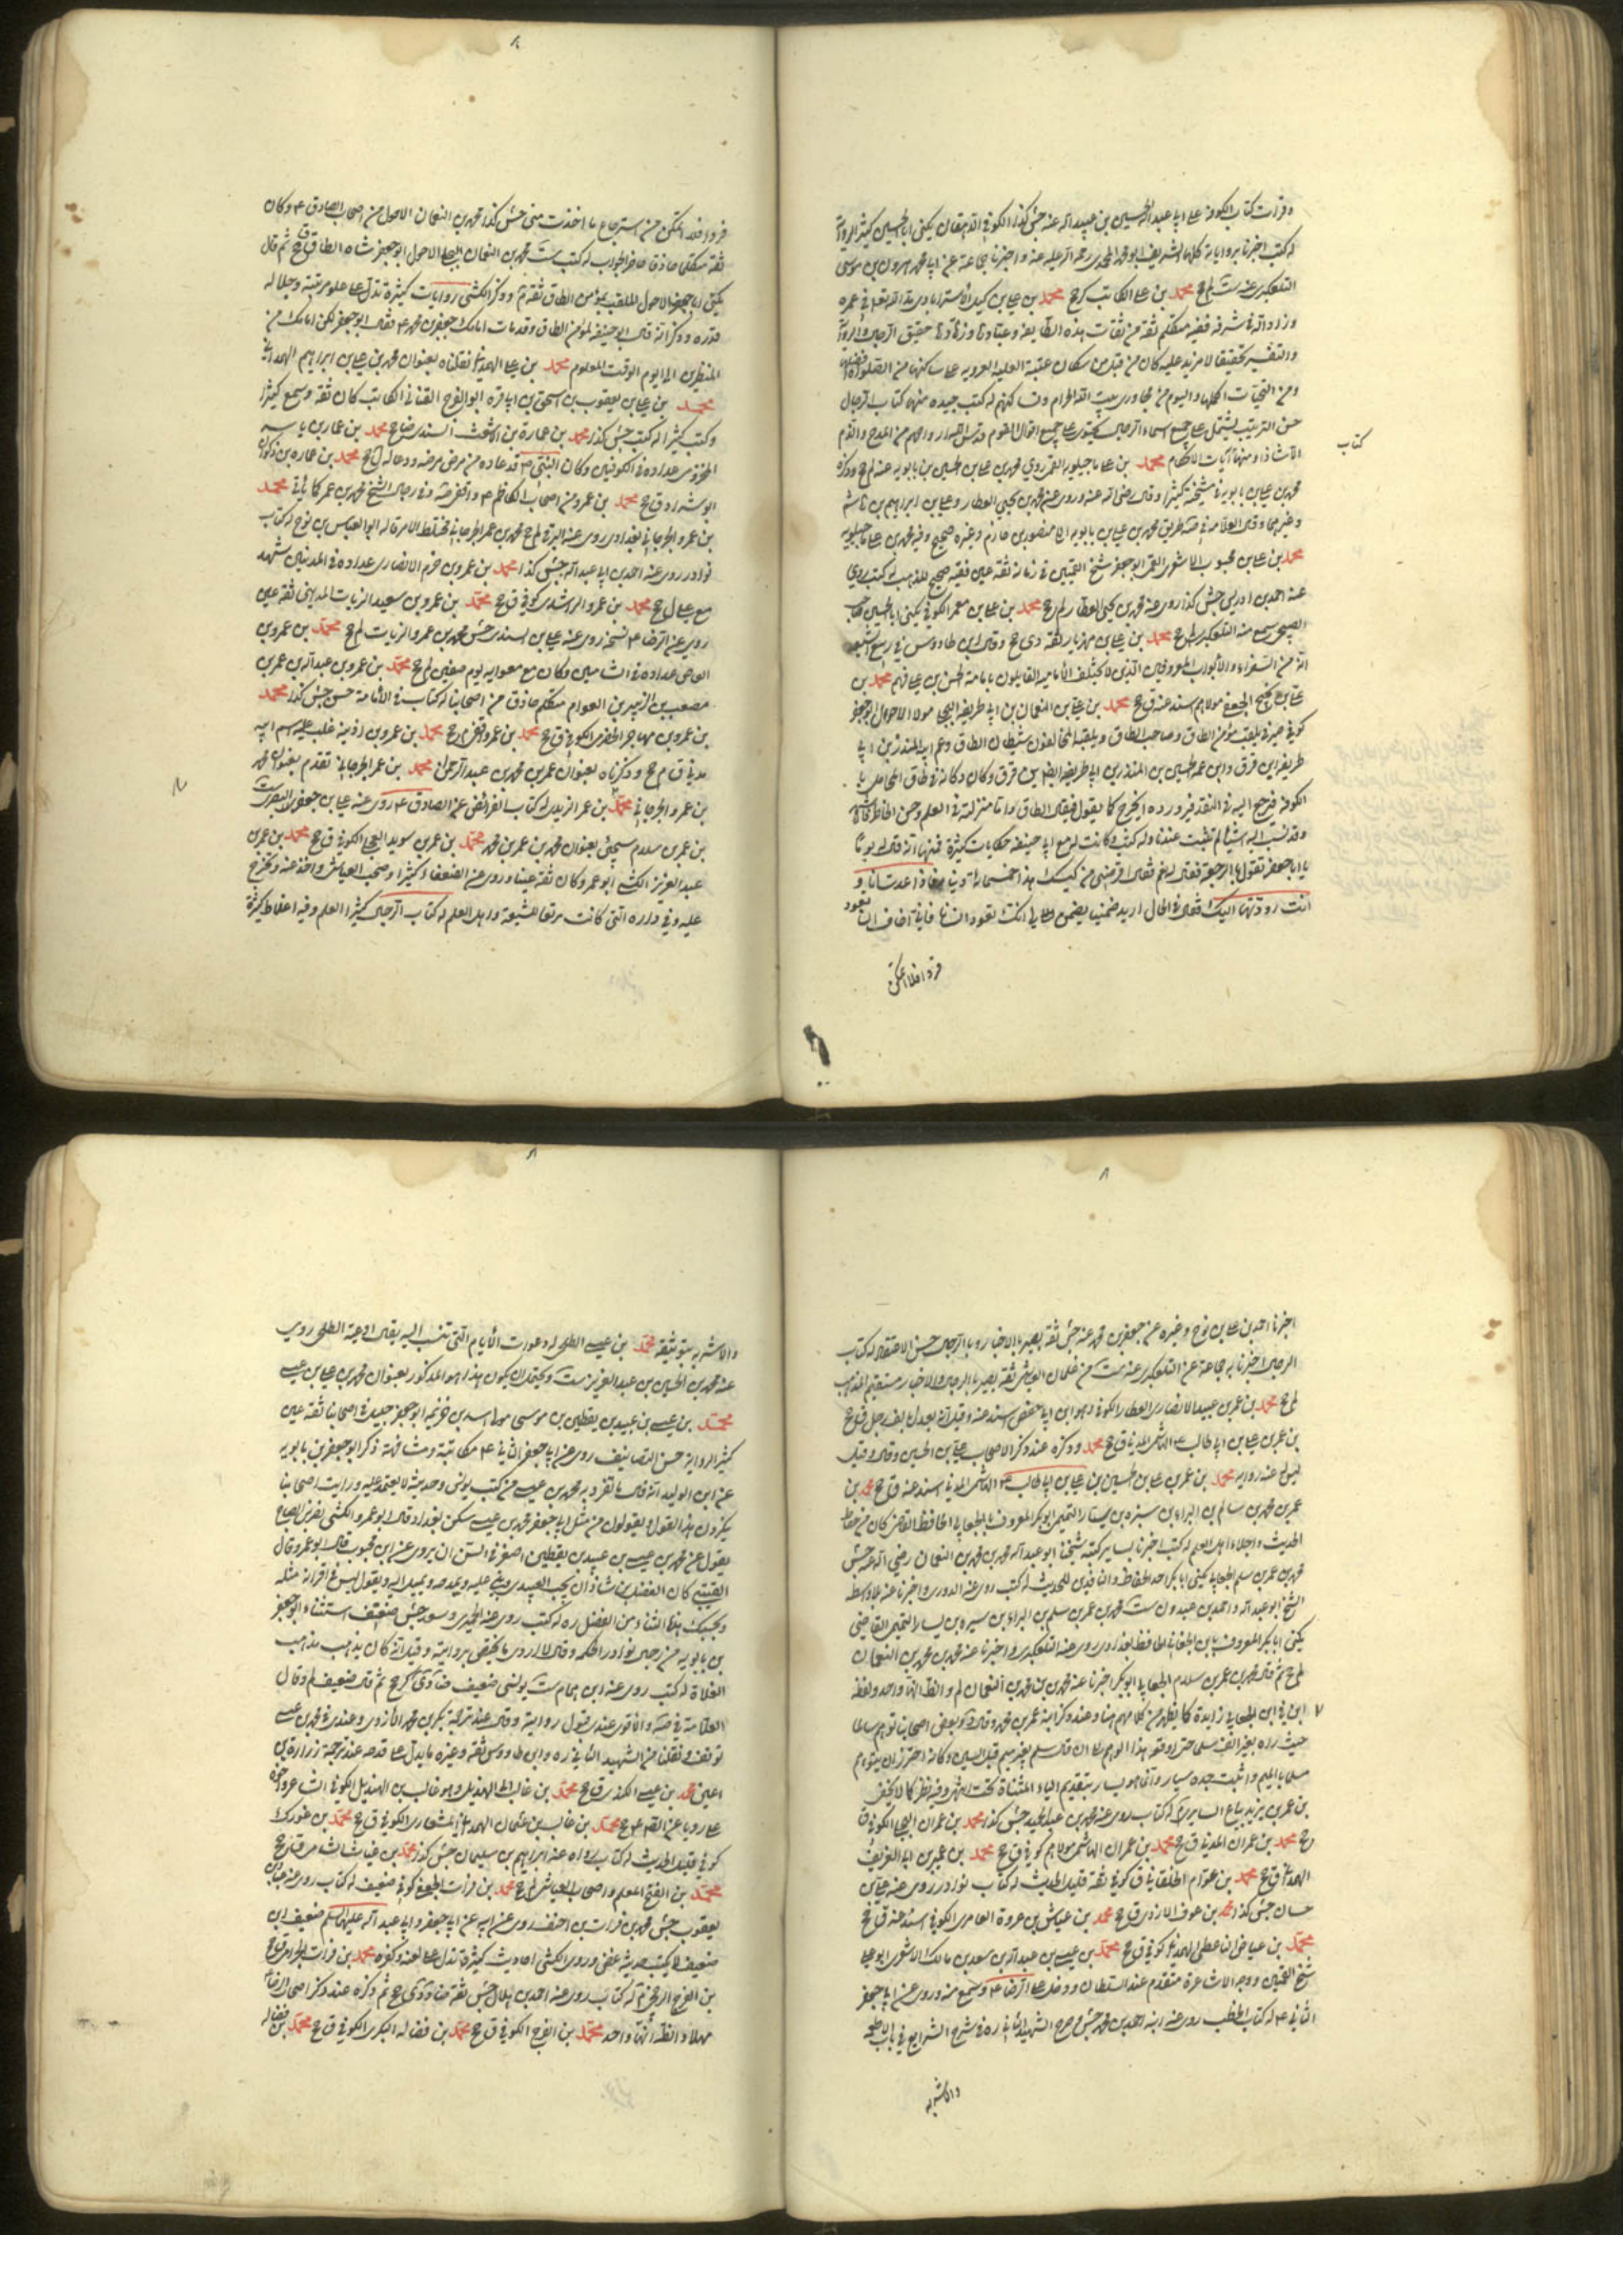 وقرات كتاب الكوفة على ابي عبد الله الحسين بن عبيد الله عنه جش كذا الكوفي الدهقان يكنى ابا الحسين كثير الرواية
له كتب اخبرنا برواياته كلها الشريف ابو محمد المحمدي رحمه الله عليه عنه واخبرنا جماعة عن ابي محمد هرون بن موسى
التلعكبري عنه ست لم ح محمد بن علي الكاتب كرح محمد بن علي بن كيل الاسترابادي مد الله تعالى في عمره
وزاد الله في شرفه فقيه متكلم ثقة من ثقات هذه الطائفة وعبادها وزهادها حقيق الرجال والرواية
والتفسير تحقيقا لا مزيد عليه كان من قبل من سكان عتبة العلية الغروية على ساكنها من الصلوات افضلها
ومن التحيات اكملها واليوم من مجاوري بيت الله الحرام وله كتب جيدة منها كتاب الرجال
حسن الترتيب يشتمل على جميع اسماء الرجال يحتوي على جميع اقوال القوم قدس الله ارواحهم من المدح والذم
الا شاذا ومنها آيات الاحكام محمد بن علي ماجيلويه القمي روى محمد بن علي بن الحسين بن بابويه عنه لم ح وذكره
كتاب
محمد بن علي بن بابويه في مشيخته كثيرا وقال رضي الله عنه وروى عنه محمد بن يحيى العطار وعلي بن ابراهيم بن هاشم
وغيرهما وقال العلامة في صه طريق محمد بن علي بن بابويه الى منصور بن حازم وغيره صحيح وفيه محمد بن علي ماجيلويه
محمد بن علي بن محبوب الاشعري القمي ابو جعفر شيخ القميين في زمانه ثقة عين فقيه صحيح المذهب له كتب روى
عنه احمد بن ادريس جش كذا روى عنه محمد بن يحيى العطار لم ح محمد بن علي بن معمر الكوفي يكنى ابا الحسين صاحب
الصبيحي سمع منه التلعكبري لم ح محمد بن علي بن مهزيار ثقة دي ح وقال ابن طاووس في ربيع الشيعة
انه من السفراء والابواب المعروفين الذين لا يختلف الامامية القائلون بامامة الحسن بن علي فيهم محمد بن
علي بن نجيح الجعفي مولاهم اسند عنه ق ح محمد بن علي بن النعمان بن ابي طريفة البجلي مولا الاحول ابو جعفر
كوفي صيرفي يلقب مؤمن الطاق وصاحب الطاق ويلقبه المخالفون شيطان الطاق وعم ابيه المنذر بن ابي
طريفة ابن فرق وابن عمه الحسين بن المنذر بن ابي طريفة ايضا بن فرق وكان دكانه في طاق المحامل با
الكوفة فيرجع اليه في النقد فيرد رده يخرج كما يقول فيقال الطاق واما منزلته في العلم وحسن الخاطر فاشهر
وقد نسب اليه اشياء لم تثبت عندنا وله كتب وكانت له مع ابي حنيفة حكايات كثيرة فمنها انه قال له يوما
يا ابا جعفر تقول بالرجعة فقال له نعم فقال اقرضني من كيسك هذا خمسمائة دينار فاذا عدت انا و
انت رددتها اليك فقال في الحال اريد ضمينا يضمن لي انك تعود انسانا فاني اخاف ان تعود
قردا فلا اتمكن
قردا فلا اتمكن من استرجاع ما اخذت مني جش كذا محمد بن النعمان الاحول من اصحاب الصادق ع وكان
ثقة متكلما حاذقا حاضر الجواب له كتب ست محمد بن النعمان البجلي الاحول ابو جعفر شاه الطاق ق ح ثم قال
يكنى ابا جعفر الاحول الملقب بمؤمن الطاق ثقة م وذكر الكشي روايات كثيرة تدل على علو مرتبته وجلالة
قدره وذكر انه قال ابو حنيفة لمؤمن الطاق وقد مات امامك جعفر بن محمد ع فقال ابو جعفر لكن امامك من
المنظرين الى يوم الوقت المعلوم محمد بن علي الهمداني نقلناه بعنوان محمد بن علي بن ابراهيم الهمداني
محمد بن علي بن يعقوب بن اسحق بن ابي قرة ابو الفرج القناني الكاتب كان ثقة وسمع كثيرا
وكتب كثيرا له كتب جش كذا محمد بن عمارة بن الاشعث السندي ضا ح محمد بن عمار بن ياسر
المخزومي عداده في الكوفيين وكان النبي ص قد عاده من مرض مرضه ودعا له ل ح محمد بن عمارة بن ذكوان
ابو شداد ق ح محمد بن عمرو من اصحاب الكاظم ع واقفي صه وفي رجال الشيخ محمد بن عمر كما ياتي محمد
بن عمرو الجرجاني بغدادي روى عنه البرقي لم ح محمد بن عمر الجرجاني مختلط الامر قاله ابو العباس بن نوح له كتاب
نوادر روى عنه احمد بن ابي عبد الله جش كذا محمد بن عمرو بن حزم الانصاري عداده في المدنيين شهد
مع علي ل ح محمد بن عمرو الراشدي كوفي ق ح محمد بن عمرو بن سعيد الزيات المدايني ثقة عين
روى عن الرضا ع نسخة روى عنه علي بن السندي جش محمد بن عمرو الزيات لم ح محمد بن عمرو بن
العاص عداده في الشاميين وكان مع معوية يوم صفين ل ح محمد بن عمرو بن عبد الله بن عمر بن
مصعب بن الزبير بن العوام متكلم حاذق من اصحابنا له كتاب في الامامة حسن جش كذا محمد
بن عمرو بن مهاجر الحضرمي الكوفي ق ح محمد بن عمرو ق ح محمد بن عمرو بن اذينة غلب عليه اسم ابيه
مدني ق م ح وذكرناه بعنوان عمر بن محمد بن عبد الرحمن محمد بن عمر الجرجاني تقدم بعنوان محمد
بن عمرو الجرجاني محمد بن عمر الزيدي له كتاب الفرائض عن الصادق ع روى عنه علي بن جعفر البصري ست
بن عمر بن سلام سيجيئ بعنوان محمد بن عمر بن محمد محمد بن عمر بن سويد العجلي الكوفي ق ح محمد بن عمر بن
عبد العزيز الكشي ابو عمرو كان ثقة عينا وروى عن الضعفاء كثيرا وصحب العياشي واخذ عنه وتخرج
عليه وفي داره التي كانت مرتعا للشيعة واهل العلم له كتاب الرجال كثير العلم وفيه اغلاط كثيرة
اخبرنا احمد بن علي بن نوح وغيره عن جعفر بن محمد عنه جش ثقة بصير بالاخبار وبالرجال حسن الاعتقاد له كتاب
الرجال اخبرنا به جماعة عن التلعكبري عنه ست من غلمان العياشي ثقة بصير بالرجال والاخبار مستقيم المذهب
لم ح محمد بن عمر بن عبيد الانصاري العطار الكوفي وهو ابن ابي حفص اسند عنه وقيل انه يعدل بالف رجل ق ح
بن عمر بن علي بن ابي طالب ع الهاشمي المدني ق ح محمد وذكره عند ذكر الاصحاب علي بن الحسين وقال وقيل
ليس له عنه رواية محمد بن عمر بن علي بن الحسين بن علي بن ابي طالب ع الهاشمي المدني اسند عنه ق ح محمد بن
عمر بن محمد بن سالم بن البراء بن سبرة بن سيار التميمي ابو بكر المعروف بالجعابي الحافظ القاضي كان من حفاظ
الحديث واجلاء اهل العلم له كتب اخبرنا بسائر كتبه شيخنا ابو عبد الله محمد بن محمد بن النعمان رضي الله عنه جش
محمد بن عمر بن سلم الجعابي يكنى ابا بكر احد الحفاظ والناقدين للحديث له كتب روى عنه الدوري واخبرنا عنه بلا واسطة
الشيخ ابو عبد الله واحمد بن عبدون ست محمد بن عمر بن سلم بن البراء بن سبرة بن يسار التميمي القاضي
يكنى ابا بكر المعروف بابن الجعابي الحافظ بغدادي روى عنه التلعكبري واخبرنا عنه محمد بن محمد بن النعمان
لم ح ثم قال محمد بن عمر بن سلام الجعابي ابو بكر اخبرنا عنه محمد بن محمد بن النعمان لم والظ انهما واحد ولفظة
ابن في ابن الجعابي زايدة كما يظهر من كلامهم هنا وعند ذكر ابنه عمر بن محمد وقال د وبعض اصحابنا توهم سالما
حيث راه بغير الف سلم حتى اوقفه هذا الوهم على ان قال سلم بغير ميم قبل السين وكانه احترز ان يتوهم
مسلما بالميم واثبت جده سيار وانما هو يسار بتقديم الياء المثناة تحت اشهر وفيه نظر كما لا يخفى
بن عمر بن يزيد بياع السابري له كتاب روى عنه محمد بن عبد الحميد جش كذا محمد بن عمران البجلي الكوفي ق
ح محمد بن عمران المدني ق ح محمد بن عمران الهاشمي مولاهم كوفي ق ح محمد بن عمير بن ابي الغريف
الهمداني ق ح محمد بن عوام الخلقاني ق كوفي ثقة قليل الحديث له كتاب نوادر روى عنه علي بن
حسان جش كذا محمد بن عوف الازدي ق ح محمد بن عياش بن عروة العامري الكوفي اسند عنه ق ح
محمد بن عياض الناعطي الهمداني كوفي ق ح محمد بن عيسى بن عبد الله بن سعد بن مالك الاشعري ابو علي
شيخ القميين ووجه الاشاعرة متقدم عند السلطان ودخل على الرضا ع وسمع منه وروى عن ابي جعفر
الثاني ع له كتاب الخطب روى عنه ابنه احمد بن محمد جش صرح الشهيد الثاني ره في شرح الشرايع في باب الاطعمة
والاشربة
والاشربة بتوثيقه محمد بن عيسى الطلحي له دعوات الايام التي تنسب اليه يقال ادعية الطلحي روى
عنه محمد بن الحسين بن عبد العزيز ست ويحتمل ان يكون هذا هو المذكور بعنوان محمد بن علي بن عيسى
محمد بن عيسى بن عبيد بن يقطين بن موسى مولى اسد بن خزيمة ابو جعفر جليل في اصحابنا ثقة عين
كثير الرواية حسن التصانيف روى عن ابي جعفر الثاني ع مكاتبة ومشافهة ذكر ابو جعفر بن بابويه
عن ابن الوليد انه قال ما تفرد به محمد بن عيسى من كتب يونس وحديثه لا يعتمد عليه ورايت اصحابنا
ينكرون هذا القول ويقولون من مثل ابي جعفر محمد بن عيسى سكن بغداد وقال ابو عمرو الكشي نصر بن الصباح
يقول ان محمد بن عيسى بن عبيد بن يقطين اصغر في السن ان يروى عن ابن محبوب قال ابو عمرو قال
القتيبي كان الفضل بن شاذان يحب العبيدي ويثني عليه ويمدحه ويميل اليه ويقول ليس في اقرانه مثله
وبحسبك بهذا الثناء من الفضل ره له كتب روى عنه الحميري وسعد جش ضعيف استثناه ابو جعفر
بن بابويه من رجال نوادر الحكمة وقال لا اروي ما يختص بروايته وقيل انه كان يذهب مذهب
الغلاة له كتب روى عنه ابن همام ست يونسي ضعيف ضا دي كر ح ثم قال ضعيف لم وقال
العلامة في صه والاقوى عندي قبول روايته وقال عند ترجمة بكر بن محمد الازدي وعندي في محمد بن عيسى
توقف ونقلنا من الشهيد الثاني ره وابن طاووس ثقة وغيره ما يدل على قدحه عند ترجمة زرارة بن
اعين محمد بن عيسى الكندي ق ح محمد بن غالب الهذيل وهو غالب بن الهذيل الكوفي الشاعر واخوه
علي رويا عن القم ع ح محمد بن غالب بن عثمان الهمداني المشعاري الكوفي ق ح محمد بن غورك
كوفي قليل الحديث له كتاب رواه عنه ابراهيم بن سليمان جش كذا محمد بن غياث شامي ق ح
محمد بن الفتح المعلم واصحاب العياشي لم ح محمد بن فرات الجعفي كوفي ضعيف له كتاب روى عنه عباد بن
يعقوب جش محمد بن فرات بن احنف روى عن ابيه عن ابي جعفر وابي عبد الله عليهما السلام ضعيف ابن
ضعيف لا يكتب حديثه غض وروى الكشي احاديث كثيرة تدل على لعنه وكفره محمد بن فرات الجرمي ق ح
بن الفرج الرخجي له كتاب روى عنه احمد بن هلال جش ثقة ضا د دي ح ثم ذكره عند ذكر اصحاب الرضا
مهملا والظ انهما واحد محمد بن الفرج الكوفي ق ح محمد بن فضالة البكري الكوفي ق ح محمد بن فضالة